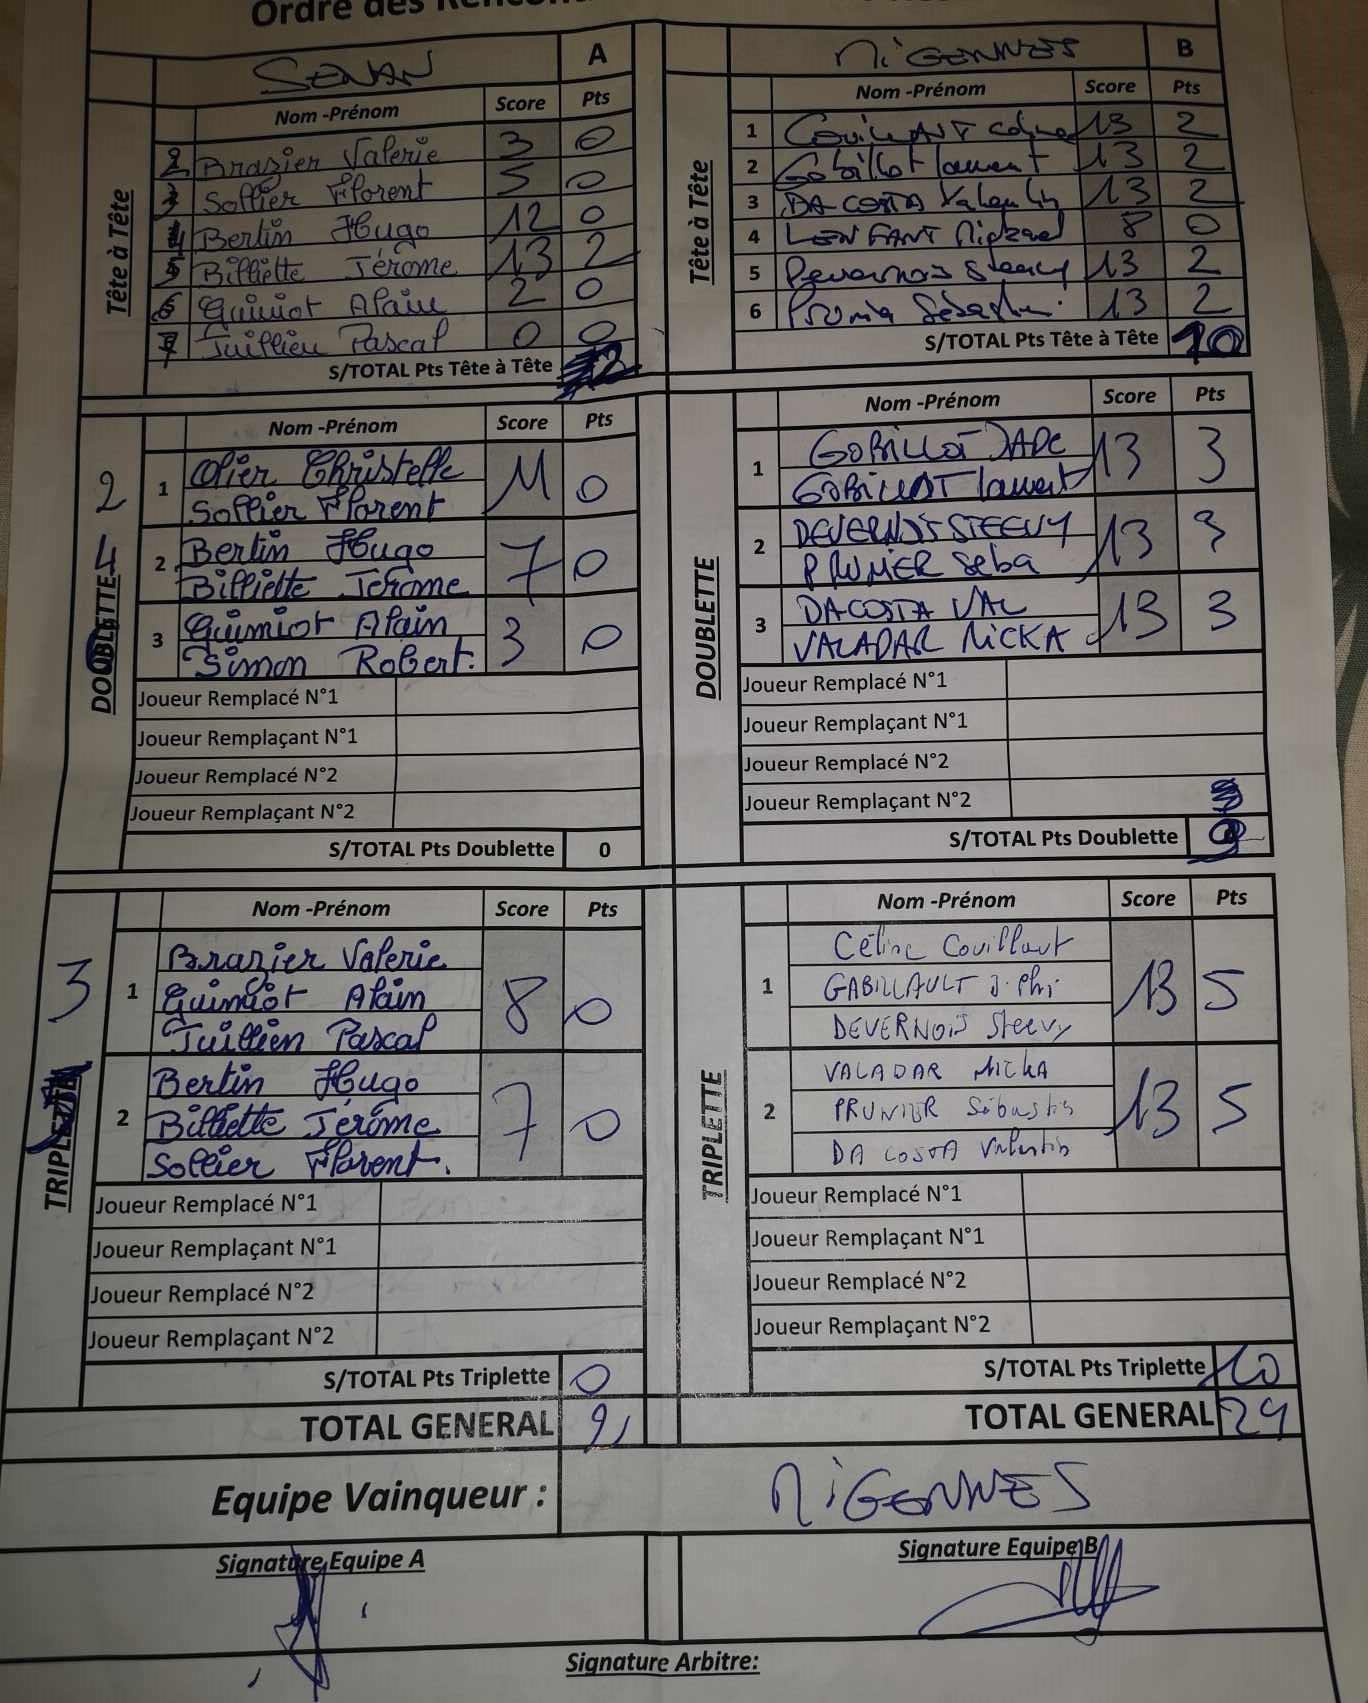 Ordre des
SENAN A
Nom -Prénom Score Pts
Tête à Tête
2 Brazier Valerie 3 0
3 Sollier Florent 5 0
4 Bertin Hugo 12 0
5 Billiette Jérôme 13 2
6 Guimiot Alain 2 0
7 Juillien Pascal 0 0
S/TOTAL Pts Tête à Tête 2
MIGENNES B
Nom -Prénom Score Pts
Tête à Tête
1 COUILLAUT Céline 13 2
2 Gobillot laurent 13 2
3 DA COSTA Valentin 13 2
4 LENFANT Mickael 8 0
5 Devernois Steevy 13 2
6 13 2
S/TOTAL Pts Tête à Tête 10
2
DOUBLETTE
Nom -Prénom Score Pts
1 Olier Christelle 11 0
Sollier Florent
2 Bertin Hugo 7 0
Billiette Jérôme
3 Guimiot Alain 3 0
Simon Robert.
Joueur Remplacé N°1
Joueur Remplaçant N°1
Joueur Remplacé N°2
Joueur Remplaçant N°2
S/TOTAL Pts Doublette 0
DOUBLETTE
Nom -Prénom Score Pts
1 GOBILLOT JADE 13 3
GOBILLOT laurent
2 DEVERNOIS STEEVY 13 3
PRUNIER Seba
3 DACOSTA VAL 13 3
VALADAR MICKA
Joueur Remplacé N°1
Joueur Remplaçant N°1
Joueur Remplacé N°2
Joueur Remplaçant N°2
S/TOTAL Pts Doublette 9
3
TRIPLETTE
Nom -Prénom Score Pts
1 Brazier Valerie 8 0
Guimiot Alain
Juillien Pascal
2 Bertin Hugo 7 0
Billiette Jérôme
Sollier Florent.
Joueur Remplacé N°1
Joueur Remplaçant N°1
Joueur Remplacé N°2
Joueur Remplaçant N°2
S/TOTAL Pts Triplette 0
TOTAL GENERAL 2
TRIPLETTE
Nom -Prénom Score Pts
1 Céline Couillaut 13 5
GABILLAULT J. Phi
DEVERNOIS Steevy
2 VALADAR MICKA 13 5
PRUNIER Sébastin
DA COSTA Valentin
Joueur Remplacé N°1
Joueur Remplaçant N°1
Joueur Remplacé N°2
Joueur Remplaçant N°2
S/TOTAL Pts Triplette 10
TOTAL GENERAL 29
Equipe Vainqueur : MIGENNES
Signature Equipe A
Signature Equipe B
Signature Arbitre: